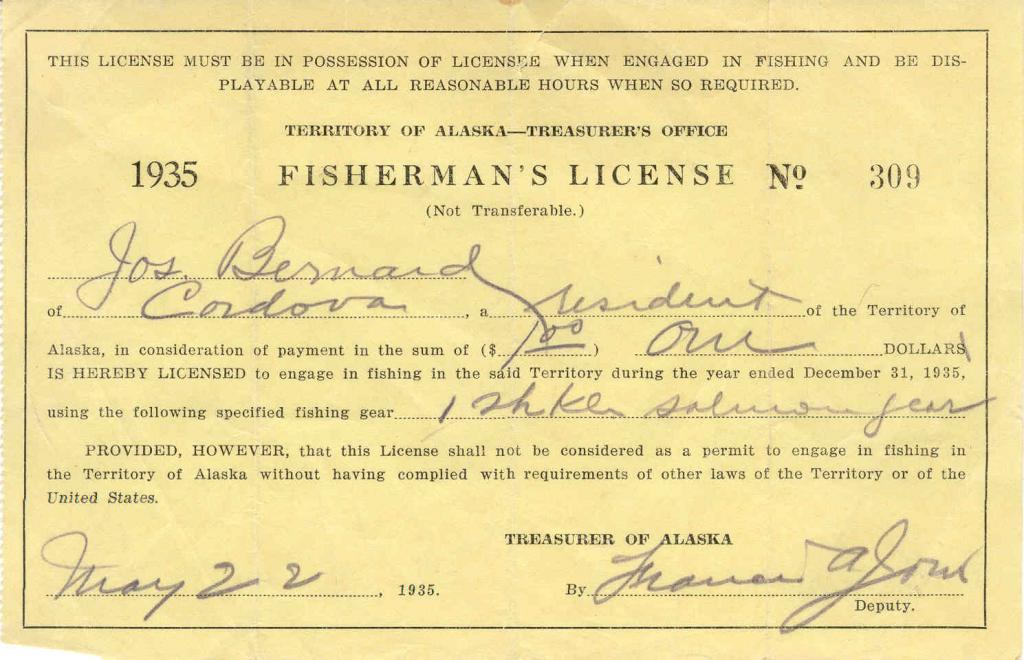 THIS LICENSE MUST BE IN POSSESSION OF LICENSEE WHEN ENGAGED IN FISHING AND BE DIS-
PLAYABLE AT ALL REASONABLE HOURS WHEN SO REQUIRED.
TERRITORY OF ALASKA—TREASURER'S OFFICE
1935 FISHERMAN'S LICENSE No 309
(Not Transferable.)
Jos. Bernard
of Cordova, a resident of the Territory of
Alaska, in consideration of payment in the sum of ($ 1 00) One DOLLARS
IS HEREBY LICENSED to engage in fishing in the said Territory during the year ended December 31, 1935,
using the following specified fishing gear 1 salmon gear
PROVIDED, HOWEVER, that this License shall not be considered as a permit to engage in fishing in
the Territory of Alaska without having complied with requirements of other laws of the Territory or of the
United States.
TREASURER OF ALASKA
May 22, 1935. By A
Deputy.